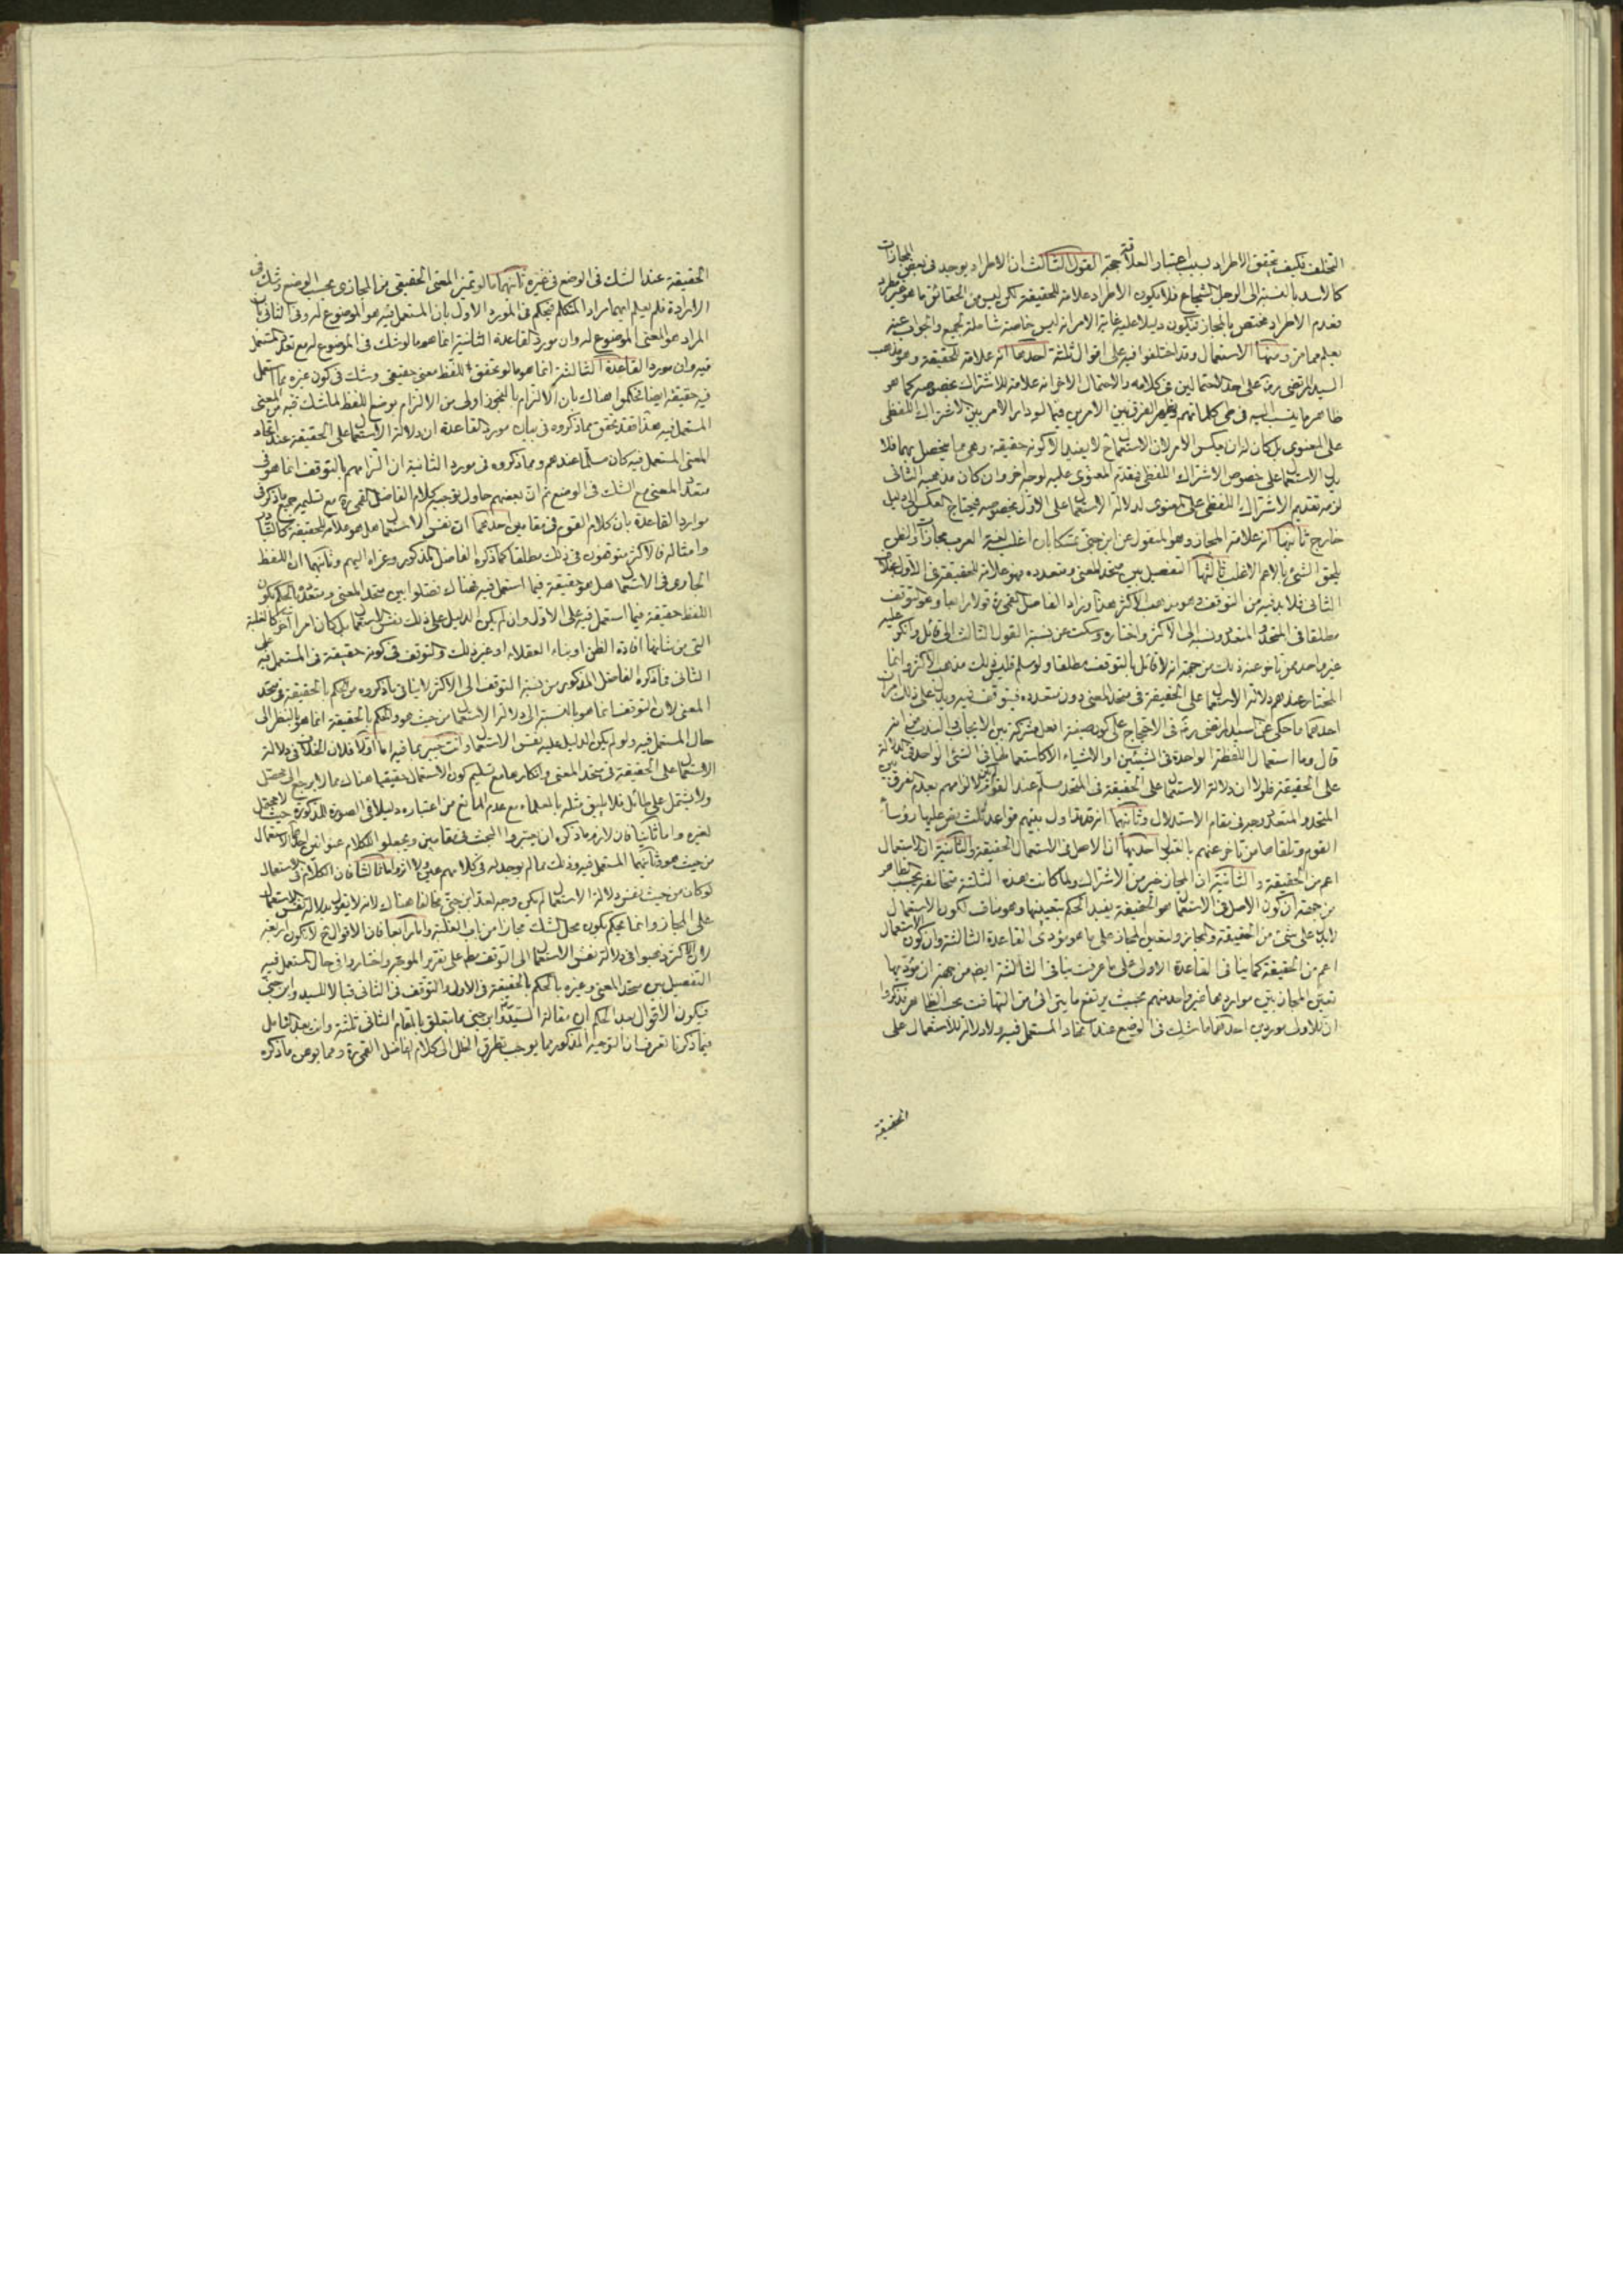 التخلف فكيف تحقق الاطراد بسبب اعتبار العلاقة حجة القول الثالث ان الاطراد يوجد فى بعض المجازات
كالاسد بالنسبة الى الرجل الشجاع فلا يكون الاطراد علامة للحقيقة لكن ليس من الحقائق ما هو غير مطرد
فعدم الاطراد مختص بالمجاز فيكون دليلا عليه غاية الامر انه ليس خاصة شاملة لجميع والجواب عنه
يعلم مما مر ومنها الاستعمال وقد اختلفوا فيه على اقوال ثلثة احدها انه علامة للحقيقة وهو مذهب
السيد المرتضى ره على احد احتمالين فى كلامه والاحتمال الاخر انه علامة للاشتراك بخصوصه كما هو
ظاهر ما ينسب اليه فى كلماتهم ويظهر الفرق بين الامرين فيما لو دار الامر بين الاشتراك اللفظى
على المعنوى بل كان له ان يعكس الامر لان الاستعمال لا يفيد الا كونه حقيقة وهو مما يحصل بهما فلا
يدل الاستعمال على خصوص الاشتراك اللفظى فيقدم المعنوى عليه لوجه اخر وان كان مذهبه الثانى
لزمه تقديم الاشتراك اللفظى على المعنوى لدلالة الاستعمال على الاول بخصوصه فيحتاج العكس الى دليل
خارج ثانيها انه علامة المجاز وهو المنقول عن ابن جنى متمسكا بان اغلب لغة العرب مجازات والظن
يلحق الشئ بالاعم الاغلب ثالثها التفصيل بين متحد المعنى ومتعدده فهو علامة للحقيقة فى الاول بخلاف
الثانى فلا بد فيه من التوقف وهو مذهب الاكثر هذا وزاد الفاضل القمى ره قولا رابعا وهو التوقف
مطلقا فى المتحد والمتعدد ونسبه الى الاكثر واختاره وسكت عن نسبة القول الثالث الى قائل وانكر عليه
غير واحد ممن تاخر عنه ذلك من جهة انه لا قائل بالتوقف مطلقا ولو سلم فليس ذلك مذهب الاكثر وانما
المختار عندهم دلالة الاستعمال على الحقيقة فى متحد المعنى دون متعدده فيتوقف فيه ويدل على ذلك امران
احدهما ما حكى عن السيد المرتضى ره فى الاحتجاج على كون صيغة افعل مشتركة بين الايجاب والندب من انه
قال وما استعمال اللفظة الواحدة فى الشيئين او الاشياء الا كاستعمالها فى الشئ الواحد فى الدلالة
على الحقيقة فلولا ان دلالة الاستعمال على الحقيقة فى المتحد مسلم عند القوم لم يكن لالزامهم بعدم الفرق بين
المتحد والمتعدد وجه فى مقام الاستدلال وثانيهما انه قد تداول بينهم قواعد ثلث بنو عليها رؤساء
القوم وتلقاها من تاخر عنهم بالقبول احديها ان الاصل فى الاستعمال الحقيقة والثانية ان الاستعمال
اعم من الحقيقة والثانية ان المجاز خير من الاشتراك ولما كانت هذه الثلثة متخالفة بحسب الظاهر
من جهة ان كون الاصل فى الاستعمال هو الحقيقة يفيد الحكم بتعيينها وهو مناف لكون الاستعمال
لا يدل على شئ من الحقيقة والمجاز ولتعين المجاز على ما هو مؤدى القاعدة الثالثة وان كون الاستعمال
اعم من الحقيقة كما ينافى القاعدة الاولى على ما عرفت ينافى الثالثة ايضا من جهة ان مؤديها
تعين المجاز بين مواردها غير واحد منهم بحيث يرتفع ما يترائى من التهافت بحسب الظاهر فذكروا
ان للاول موردين احدهما ما شك فى الوضع عند اتحاد المستعمل فيه ولا دلالة للاستعمال على
الحقيقة
الحقيقة عند الشك فى الوضع فى غيره ثانيهما ما لو تميز المعنى الحقيقى من المجازى بحسب الوضع وشك فى
الارادة فلم يعلم ايهما مراد المتكلم فيحكم فى المورد الاول بان المستعمل فيه هو الموضوع له وفى الثانى بان
المراد هو المعنى الموضوع له وان مورد القاعدة الثانية انما هو ما لو شك فى الموضوع له مع تعدد المستعمل
فيه وان مورد القاعدة الثالثة انما هو ما لو تحقق للفظ معنى حقيقى وشك فى كون غيره مما استعمل
فيه حقيقة ايضا فحكموا هناك بان الالتزام بالتجوز اولى من الالتزام بوضع اللفظ لما شك فيه من المعنى
المستعمل فيه هذا فقد تحقق بما ذكروه فى بيان مورد القاعدة ان دلالة الاستعمال على الحقيقة عند اتحاد
المعنى المستعمل فيه كان مسلما عندهم ومما ذكروه فى مورد الثانية ان التزامهم بالتوقف انما هو فى
متعدد المعنى مع الشك فى الوضع ثم ان بعضهم حاول توجيه كلام الفاضل القمى ره مع تسليمه جميع ما ذكر فى
موارد القاعدة بان كلام القوم فى مقامين احدهما ان نفس الاستعمال هل هو علامة للحقيقة كالتبادر
وامثاله فالاكثر متوقفون فى ذلك مطلقا كما ذكره الفاضل المذكور وعزاه اليهم وثانيهما ان اللفظ
الجارى فى الاستعمال هل هو حقيقة فيما استعمل فيه فهناك فصلوا بين متحد المعنى ومتعدده بالحكم بكون
اللفظ حقيقة فيما استعمل فيه على الاول وان لم يكن الدليل على ذلك نفس الاستعمال بل كان امرا آخر كالغلبة
التى من شانها افادة الظن او بناء العقلاء او غير ذلك والتوقف فى كونه حقيقة فى المستعمل فيه على
الثانى فما ذكره الفاضل المذكور من نسبة التوقف الى الاكثر لا ينافى ما ذكروه من الحكم بالحقيقة فى متحد
المعنى لان التوقف انما هو بالنسبة الى دلالة الاستعمال من حيث هو والحكم بالحقيقة انما هو بالنظر الى
حال المستعمل فيه ولو لم يكن الدليل عليه نفس الاستعمال وانت خبير بما فيه اما اولا فلان الخلاف فى دلالة
الاستعمال على الحقيقة فى متحد المعنى وانكارها مع تسليم كون الاستعمال حقيقيا هناك مما لا يرجع الى محصل
ولا يشتمل على طائل فلا يليق مثله بالعلماء مع عدم المانع من اعتباره دليلا فى الصورة المذكورة حيث لا محتمل
لغيره واما ثانيا فان لازم ما ذكره ان يحرروا البحث فى مقامين ويجعلوا للكلام عنوانين احدهما الاستعمال
من حيث هو وثانيهما المستعمل فيه وذلك مما لم يوجد له فى كلامهم عين ولا اثر واما ثالثا فان الكلام فى الاستعمال
لو كان من حيث نفس دلالة الاستعمال لم يكن وجه لعد ابن جنى مخالفا هناك لانه لا يقول بدلالة نفس الاستعمال
على المجاز وانما يحكم بكون محل الشك مجازا من باب الغلبة واما رابعا فان الاقوال ح لا يكون اربعة
لان الاكثر ذهبوا فى دلالة نفس الاستعمال الى التوقف مطلقا على تقرير الموجه واختاروا فى حال المستعمل فيه
التفصيل بين متحد المعنى وغيره بالحكم بالحقيقة فى الاول والتوقف فى الثانى قبالا للسيد وابن جنى
فيكون الاقوال بعد الحكم ان مقالة السيد وابن جنى مما يتعلق بالمقام الثانى ثلثة وانت بعد التامل
فيما ذكرنا تعرف ان التوجيه المذكور مما يوجب تطرق الخلل الى كلام الفاضل القمى ره ومما يوهن ما ذكره